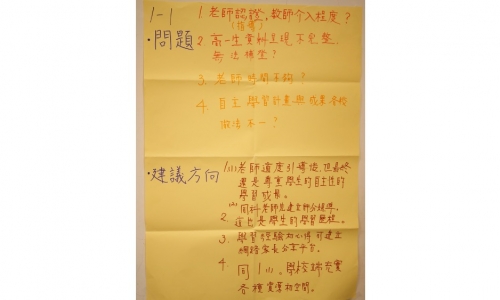 1-1
·問題
1 老師認證,教師介入程度?
(指導)
2 高一生資料呈現不完整,
無法檢查?
3. 老師時間不夠?
4. 自主學習計畫與成果各校
做法不一?
·建議方向
1/(1) 老師適度引導後,但最終
還是尊重學生的自主性的
學習成果。
(2) 同科老師是建立師分標準。
2. 這也是學生的學習歷程。
3. 學習經驗和心得可建立
網路家長分享平台。
4. 同1(1)。學校端充實
各種資源和空間。